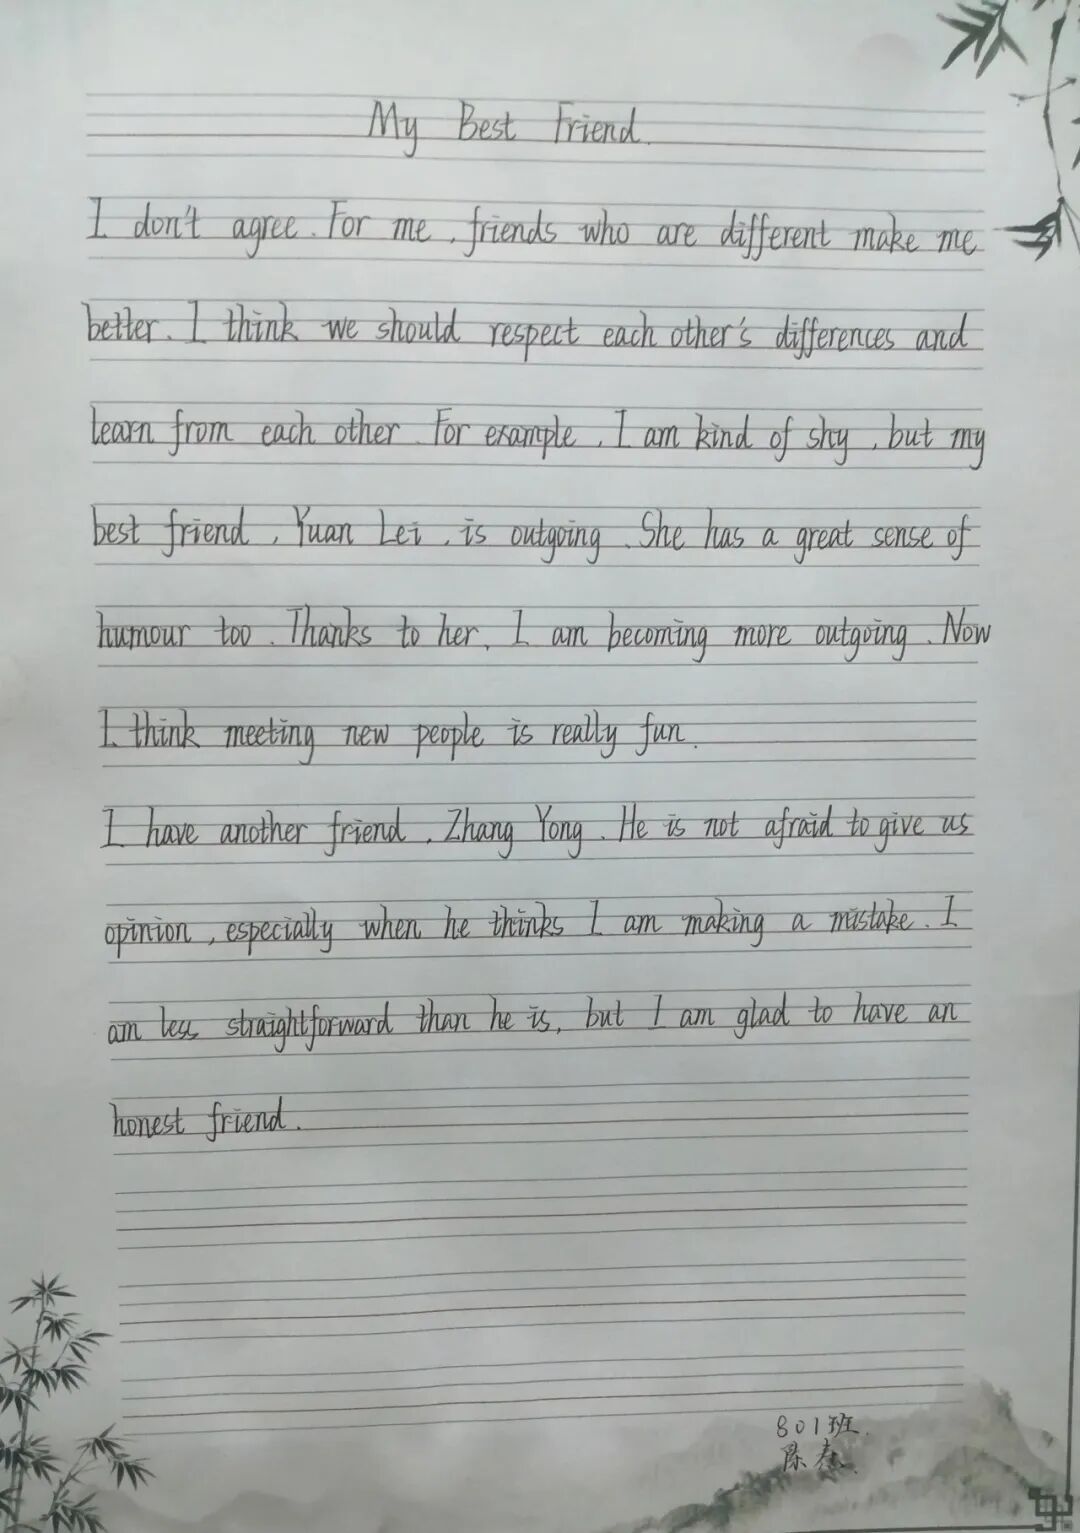 My Best Friend.
I don't agree. For me, friends who are different make me
better. I think we should respect each other's differences and
learn from each other. For example, I am kind of shy, but my
best friend, Yuan Lei, is outgoing. She has a great sense of
humour too. Thanks to her, I am becoming more outgoing. Now
I think meeting new people is really fun.
I have another friend, Zhang Yong. He is not afraid to give us
opinion, especially when he thinks I am making a mistake. I
am less straightforward than he is, but I am glad to have an
honest friend.
801班
陈